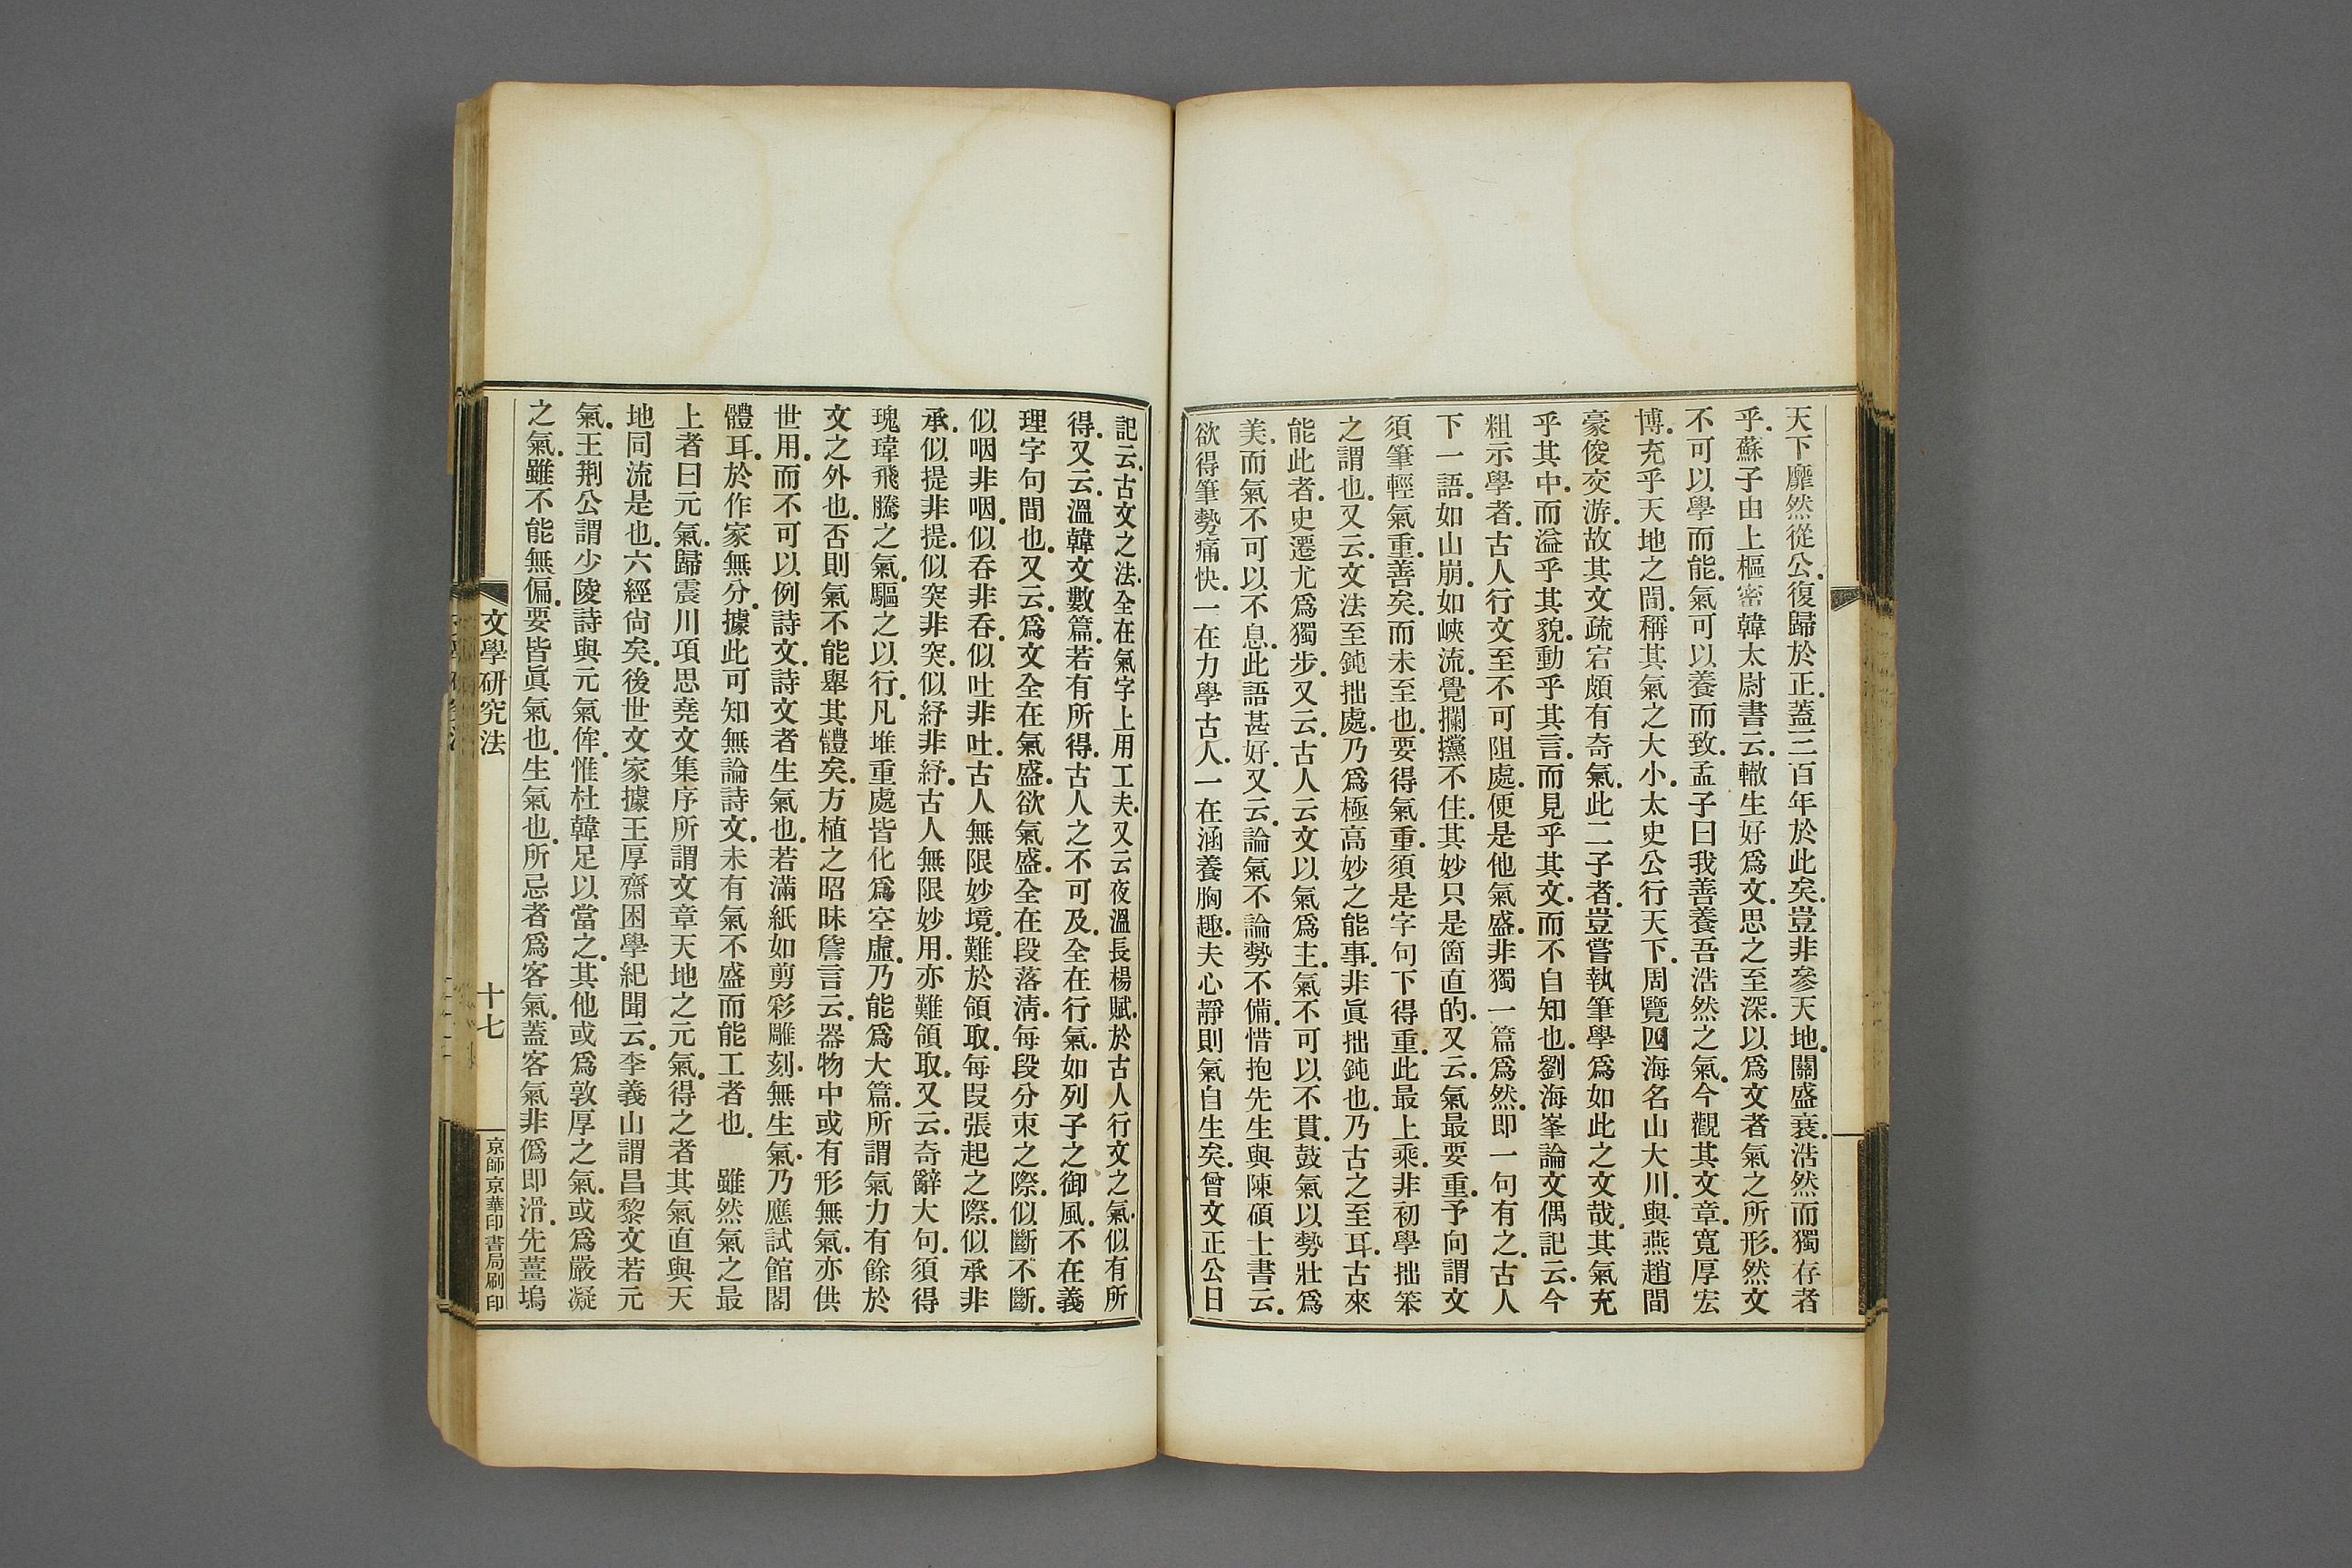 天下靡然從公復歸於正蓋三百年於此矣豈非參天地關盛衰浩然而獨存者
乎蘇子由上樞密韓太尉書云轍生好爲文思之至深以爲文者氣之所形然文
不可以學而能氣可以養而致孟子曰我善養吾浩然之氣今觀其文章寬厚宏
博充乎天地之間稱其氣之大小太史公行天下周覽四海名山大川與燕趙間
豪俊交游故其文疏宕頗有奇氣此二子者豈嘗執筆學爲如此之文哉其氣充
乎其中而溢乎其貌動乎其言而見乎其文而不自知也劉海峯論文偶記云今
粗示學者古人行文至不可阻處便是他氣盛非獨一篇爲然即一句有之古人
下一語如山崩如峽流覺攔攩不住其妙只是箇直的又云氣最要重予向謂文
須筆輕氣重善矣而未至也要得氣重須是字句下得重此最上乘非初學拙笨
之謂也又云文法至鈍拙處乃爲極高妙之能事非眞拙鈍也乃古之至耳古來
能此者史遷尤爲獨步又云古人云文以氣爲主氣不可以不貫鼓氣以勢壯爲
美而氣不可以不息此語甚好又云論氣不論勢不備惜抱先生與陳碩士書云
欲得筆勢痛快一在力學古人一在涵養胸趣夫心靜則氣自生矣曾文正公日
記云古文之法全在氣字上用工夫又云夜溫長楊賦於古人行文之氣似有所
得又云溫韓文數篇若有所得古人之不可及全在行氣如列子之御風不在義
理字句間也又云爲文全在氣盛欲氣盛全在段落淸每段分束之際似斷不斷
似咽非咽似吞非吞似吐非吐古人無限妙境難於領取每段張起之際似承非
承似提非提似突非突似紓非紓古人無限妙用亦難領取又云奇辭大句須得
瑰瑋飛騰之氣驅之以行凡堆重處皆化爲空虛乃能爲大篇所謂氣力有餘於
文之外也否則氣不能舉其體矣方植之昭昧詹言云器物中或有形無氣亦供
世用而不可以例詩文詩文者生氣也若滿紙如剪彩雕刻無生氣乃應試館閣
體耳於作家無分據此可知無論詩文未有氣不盛而能工者也　雖然氣之最
上者曰元氣歸震川項思堯文集序所謂文章天地之元氣得之者其氣直與天
地同流是也六經尙矣後世文家據王厚齋困學紀聞云李義山謂昌黎文若元
氣王荆公謂少陵詩與元氣侔惟杜韓足以當之其他或爲敦厚之氣或爲嚴凝
之氣雖不能無偏要皆眞氣也生氣也所忌者爲客氣蓋客氣非僞即滑先薑塢
文學研究法
十七
京師京華印書局刷印